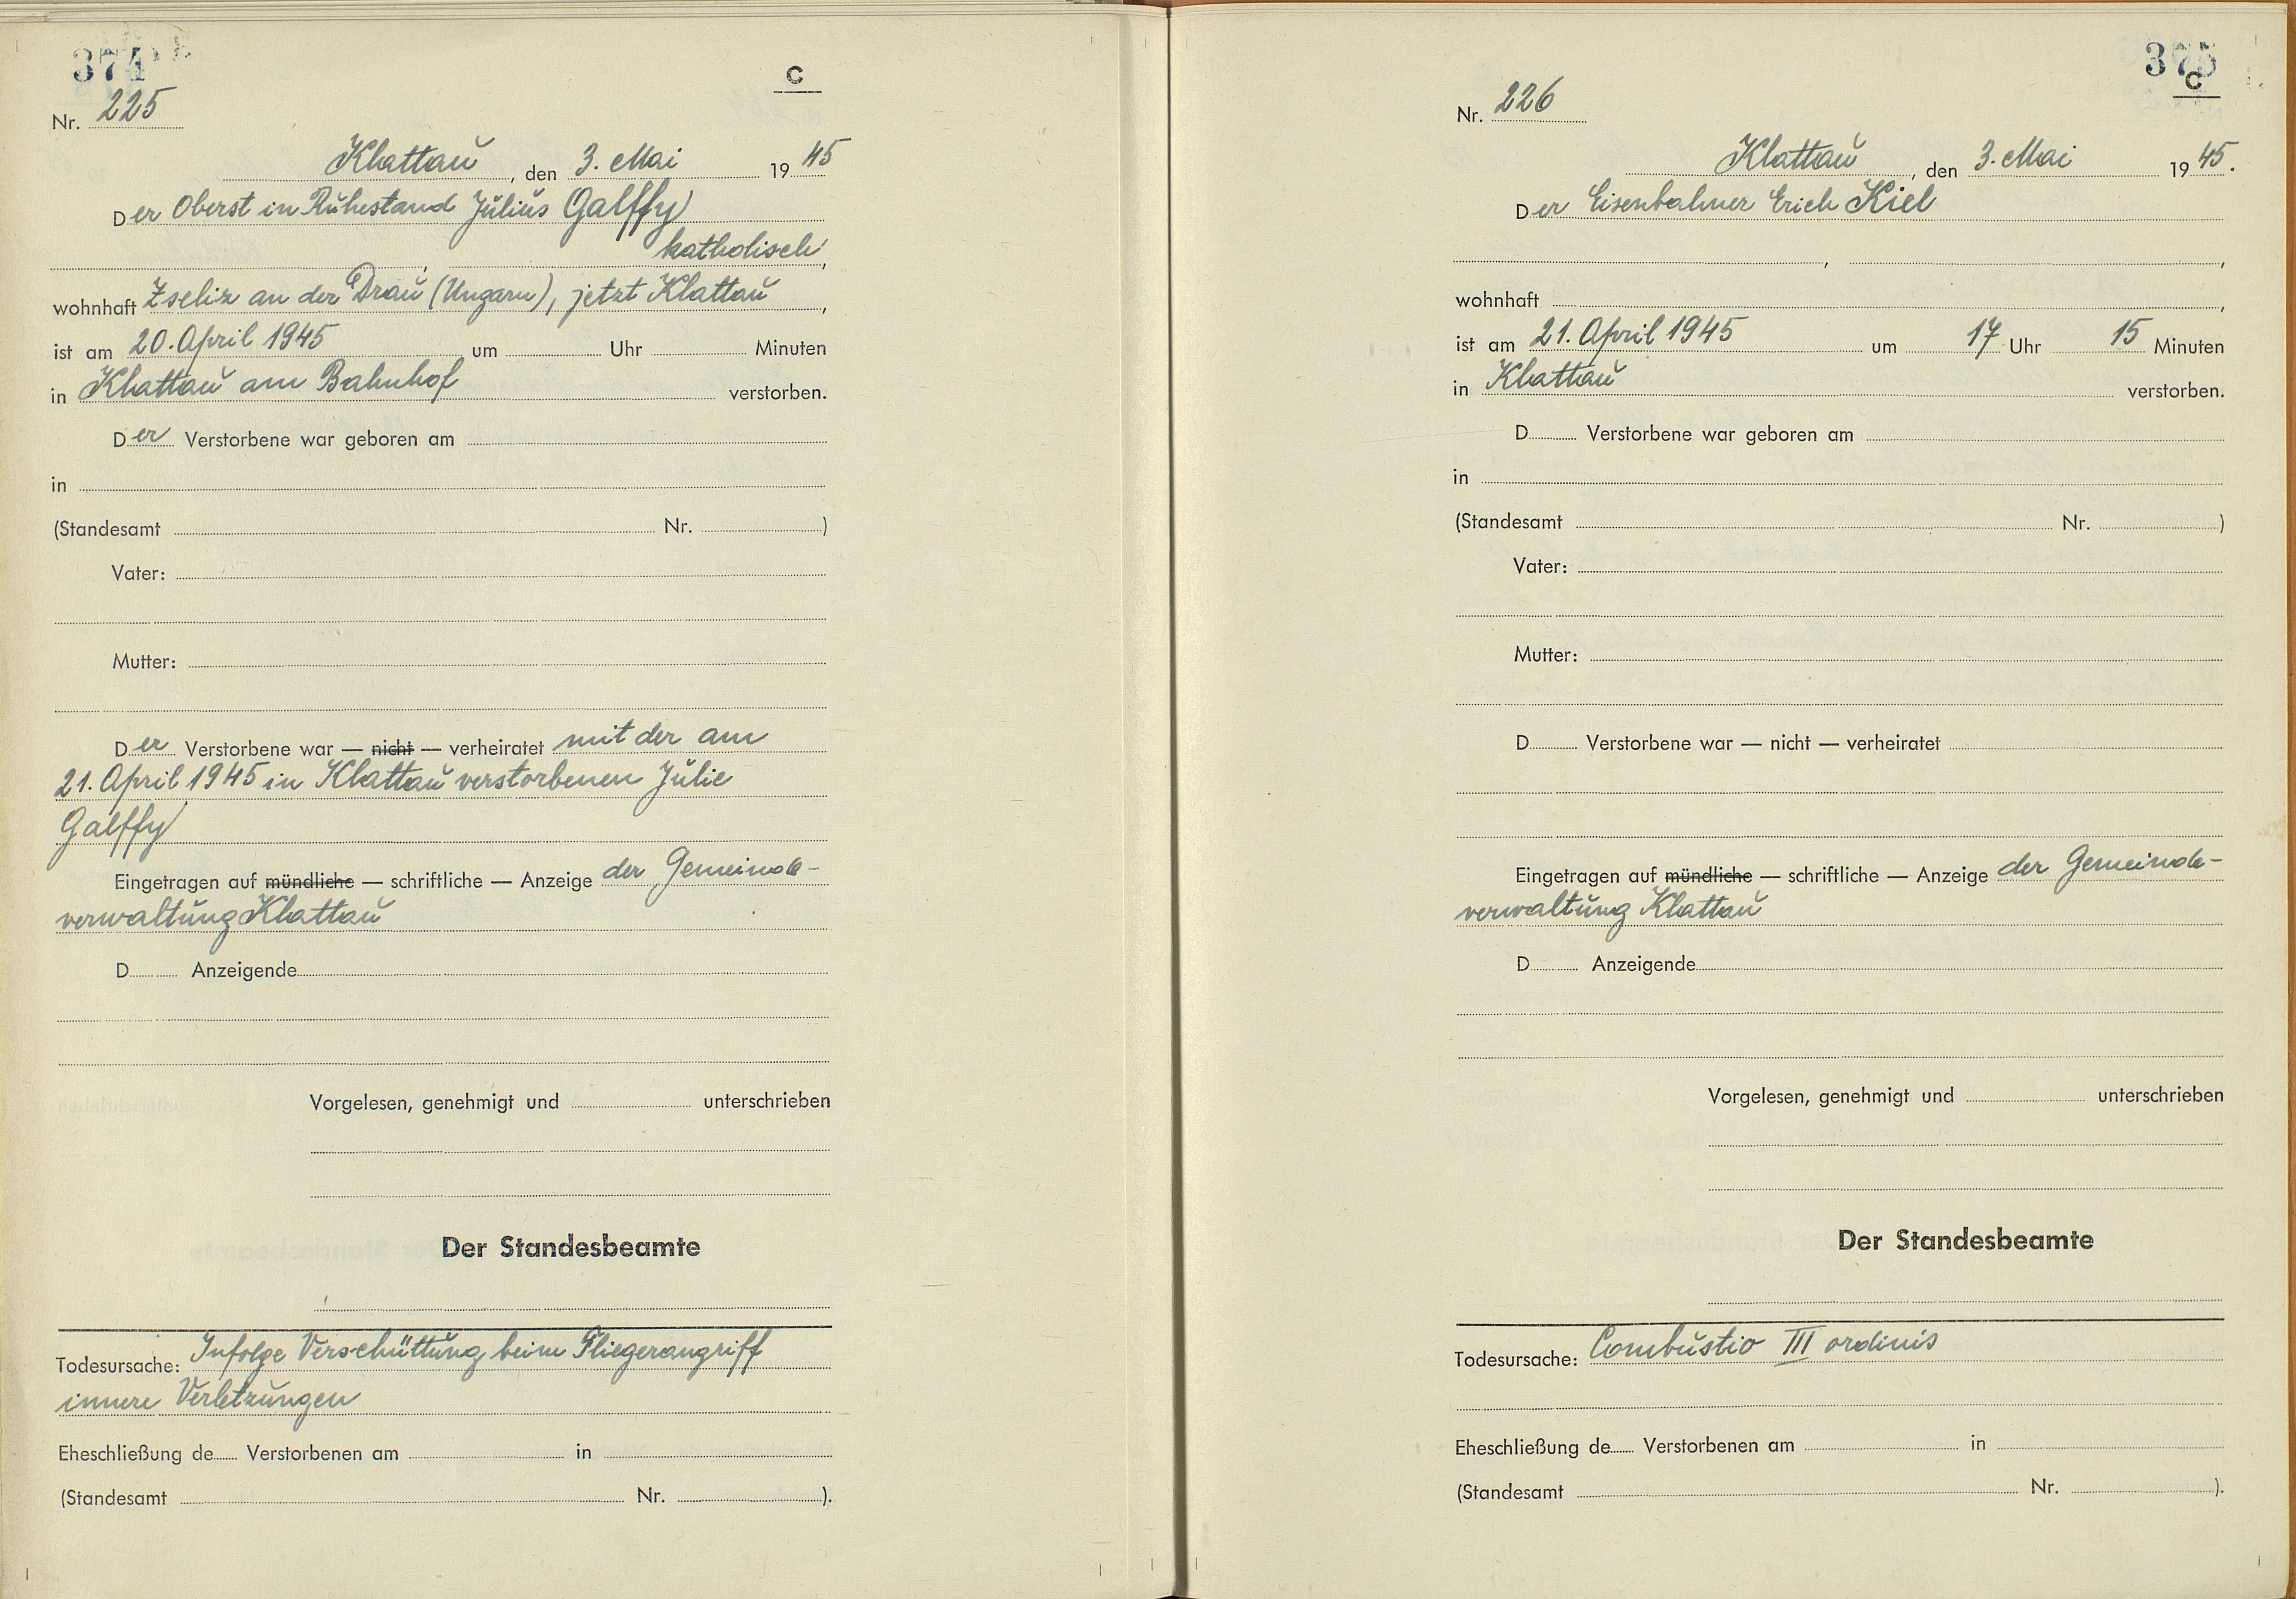 374
C
Nr. 225
Klattau, den 3. Mai 1945
Der Oberst in Ruhestand Julius Galffy
, katholisch,
wohnhaft Zseliz an der Drau (Ungarn), jetzt Klattau,
ist am 20. April 1945 um Uhr Minuten
in Klattau am Bahnhof verstorben.
Der Verstorbene war geboren am
in
(Standesamt Nr. )
Vater:
Mutter:
Der Verstorbene war — nicht — verheiratet mit der am
21. April 1945 in Klattau verstorbenen Julie
Galffy
Eingetragen auf mündliche — schriftliche — Anzeige der Gemeinde-
verwaltung Klattau
D Anzeigende
Vorgelesen, genehmigt und unterschrieben
Der Standesbeamte
Todesursache: Infolge Verschüttung beim Fliegerangriff
innere Verletzungen
Eheschließung de Verstorbenen am in
(Standesamt Nr. ).
375
C
Nr. 226
Klattau, den 3. Mai 1945.
Der Eisenbahner Erich Kiel
, ,
wohnhaft ,
ist am 21. April 1945 um 17 Uhr 15 Minuten
in Klattau verstorben.
D Verstorbene war geboren am
in
(Standesamt Nr. )
Vater:
Mutter:
D Verstorbene war — nicht — verheiratet
Eingetragen auf mündliche — schriftliche — Anzeige der Gemeinde-
verwaltung Klattau
D Anzeigende
Vorgelesen, genehmigt und unterschrieben
Der Standesbeamte
Todesursache: Combustio III ordinis
Eheschließung de Verstorbenen am in
(Standesamt Nr. ).